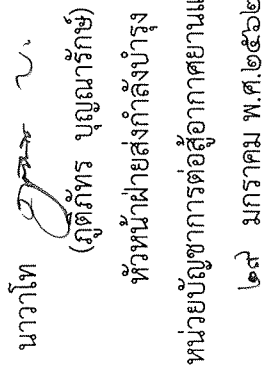 นาวาโท
(ภูติภัทร บุญณารักษ์)
หัวหน้าฝ่ายส่งกำลังบำรุง
หน่วยบัญชาการต่อสู้อากาศยานแ
๒๙ มกราคม พ.ศ.๒๕๖๒